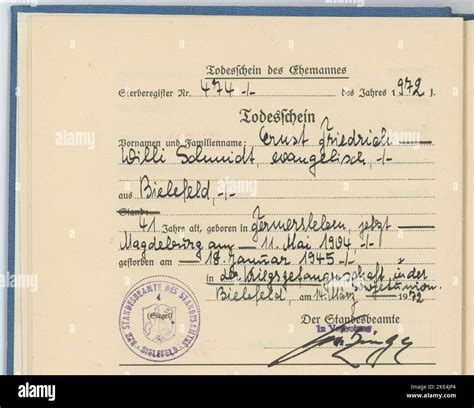 Todesschein des Ehemannes
Sterberegister Nr. 474 -/- des Jahres 1972 .
Todesschein
Vornamen und Familienname Ernst Friedrich
Willi Schmidt, evangelisch, -/-
aus Bielefeld, -/-
Stand:
41 Jahre alt, geboren in Germersleben, jetzt
Magdeburg am 11. Mai 1904 -/-
gestorben am 18. Januar 1945 -/-
in der Kriegsgefangenschaft in der Sowjetunion.
Bielefeld, am 14. März 1972
Der Standesbeamte
In Vertretung
DER STANDESBEAMTE DES STANDESAMTES
4
(Siegel)
BIELEFELD
alamy
alamy
alamy
alamy
Image ID: 2KE4JP4
www.alamy.com